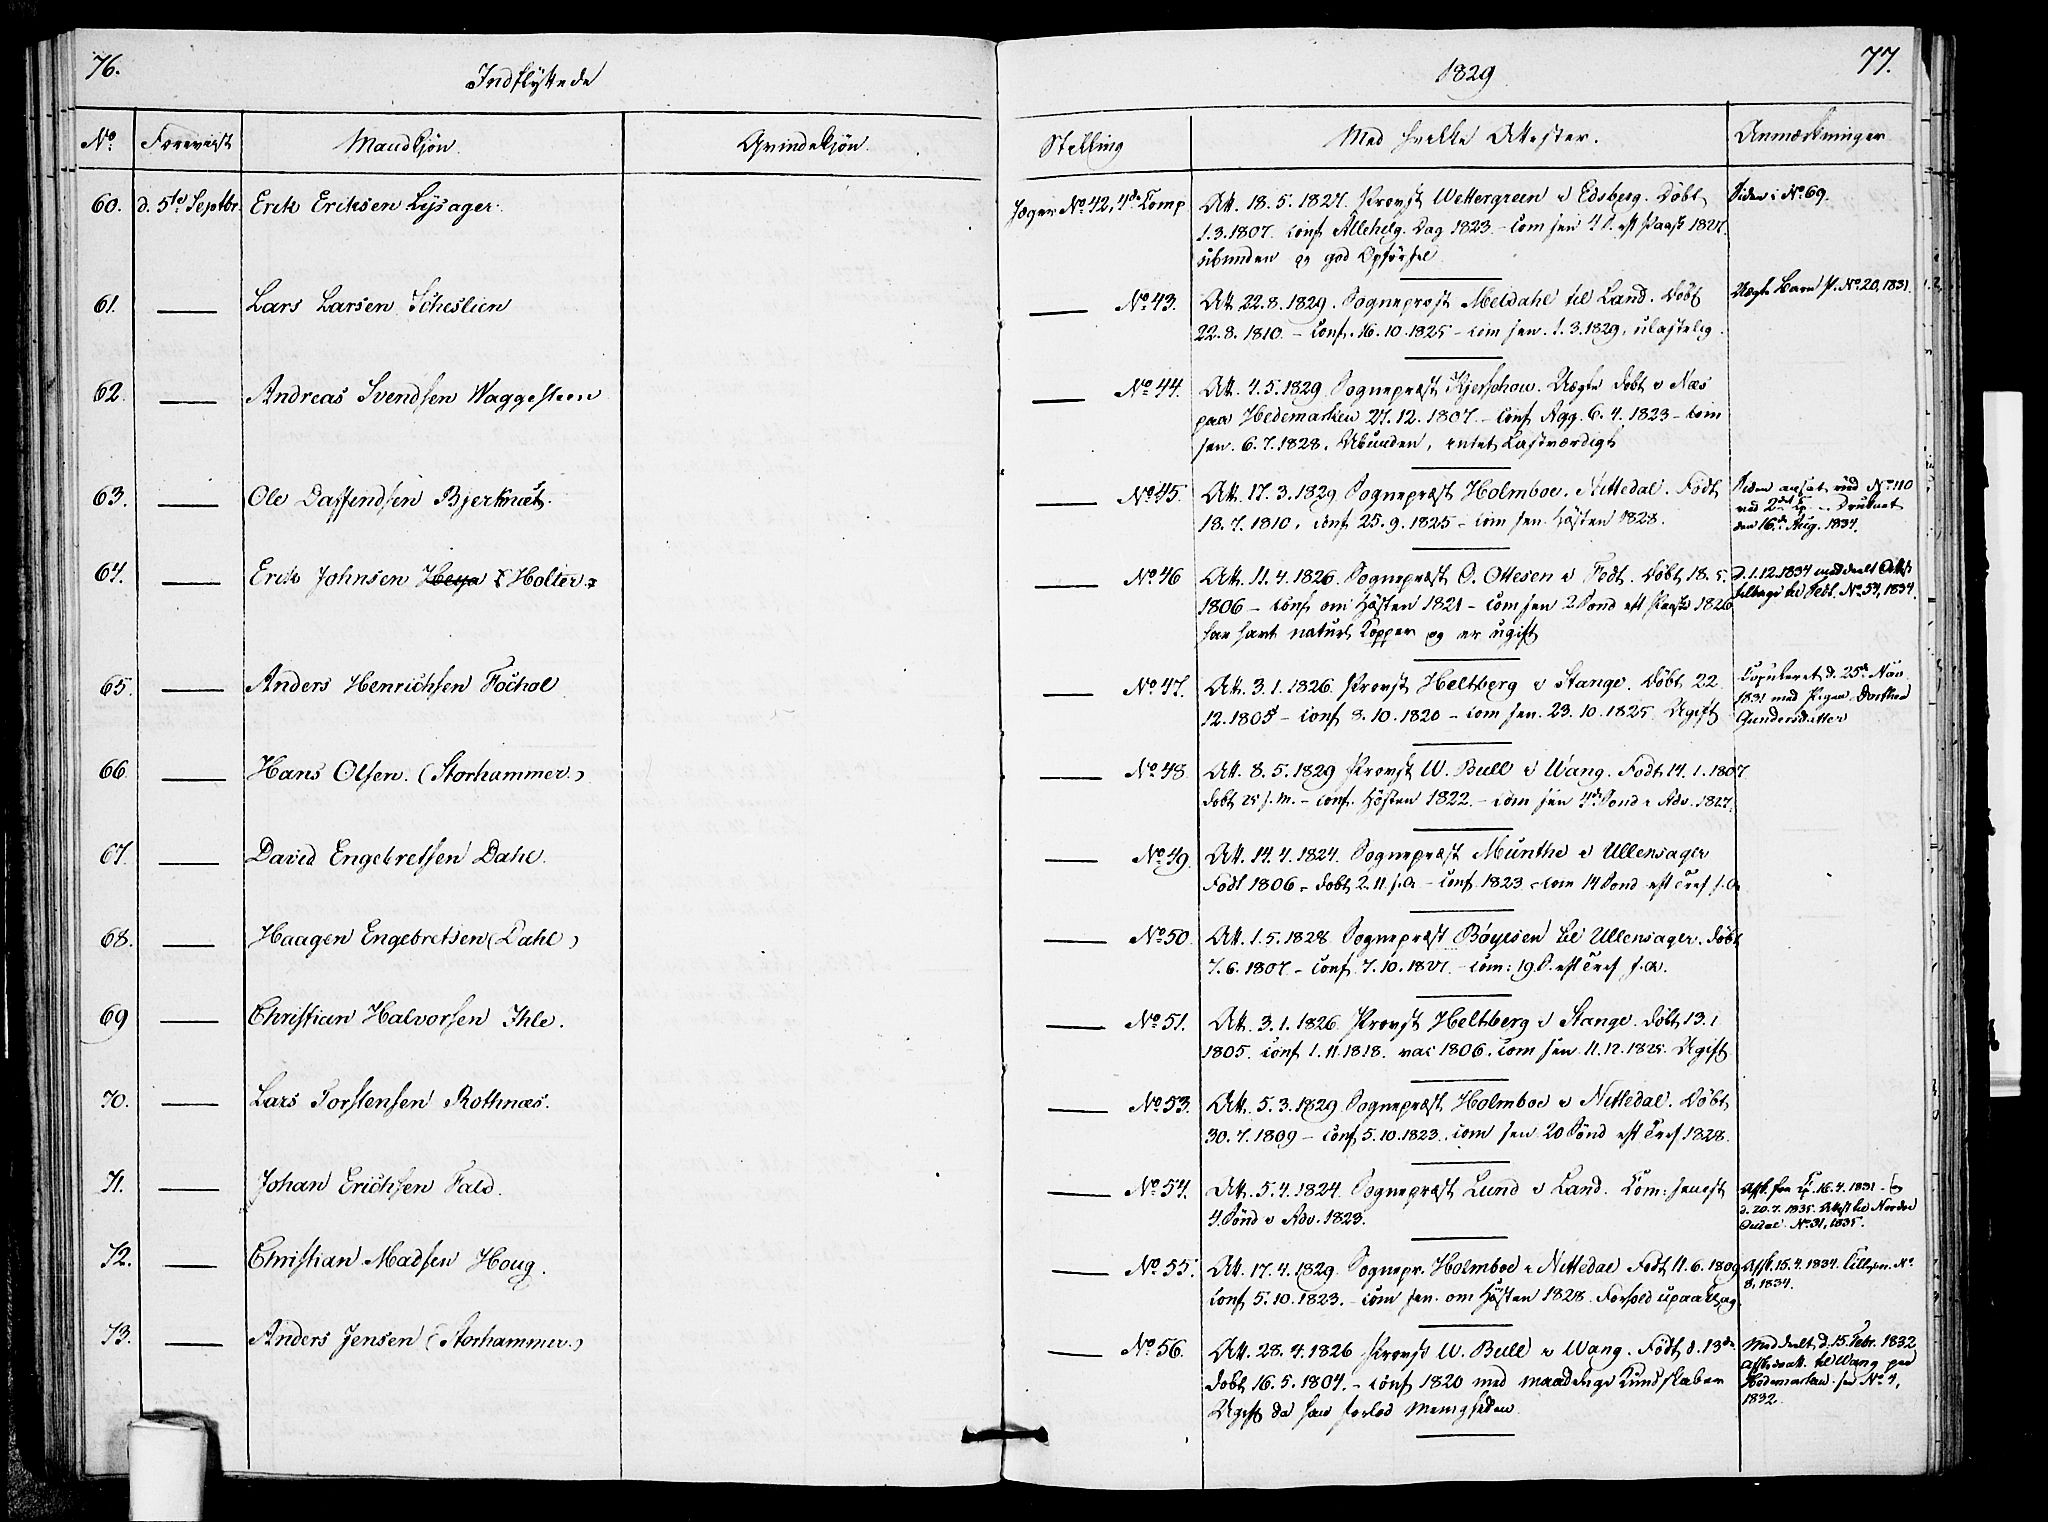 76.
Indflyttede
1829
77.
No Forevist Mandkjøn. Qvindekjøn. Stilling Med hvilke Attester. Anmærkninger
60. d. 5te Septbr. Erik Eriksen Lysager. Jæger No 42, 4de Comp Att. 18.5.1827. Provst Wettergreen i Edsberg. Døbt Siden i No 69.
1.3.1807. conf Allehelg. Dag 1823 - com sen 4 S. eft Paaske 1827.
ubunden og god Opførsel
61. Lars Larsen Scheslien No 43. Att. 22.8.1829. Sognepræst Meldahl til Land. Døbt Uægte Barn No 20, 1831.
22.8.1810. - conf. 16.10.1825 - com sen. 1.3.1829, ulastelig.
62. Andreas Svendsen Waggesteen No 44. Att. 4.5.1829 Sognepræst Kjerschow. Uægte døbt i Næs
paa Hedemarken 27.12.1807. - conf Agg. 6.4.1823 - com
sen. 6.7.1828. Ubunden, intet Lastværdigt
63. Ole Daffendsen Bjerknæs. No 45. Att. 17.3.1829 Sognepræst Holmboe. Nittedal. Født Siden ansat ved No 110
18.7.1810, conf 25.9.1825 - com sen. Høsten 1828. ved 2det Cp. - Druknet
den 16de Aug. 1834.
64. Erik Johnsen Holter No 46 Att. 11.4.1826. Sognepræst O. Ottesen i Fedt. Døbt 18.5. d. 1.12.1834 meddeelt Attest
1806 - conf om Høsten 1821 - com sen 2 Sønd eft Paaske 1826 tilbage til Fedt. No 54, 1834.
har havt naturl Kopper og er ugift
65. Anders Henrichsen Fochol No 47. Att. 3.1.1826. Provst Heltberg i Stange. Døbt 22. Copuleret d. 25de Nov
12.1805 - conf 8.10.1820 - com sen. 23.10.1825. Ugift 1831 med Pigen Dorthea
Gundersdatter
66. Hans Olsen (Storhammer) No 48. Att. 8.5.1829 Provst W. Bull i Wang. Født 14.1.1807
døbt 25 s.M. - conf. Høsten 1822. - com sen 4de Sønd i Adv. 1827.
67. David Engebretsen Dahl. No 49. Att. 14.4.1824. Sognepræst Munthe i Ullensager
Født 1806 - døbt 2.11 s.A - conf 1823 - com 14 Sønd eft Tref s.A
68. Haagen Engebretsen (Dahl) No 50. Att. 1.5.1828 Sognepræst Bøyesen til Ullensager. Døbt
7.6.1807 - conf 7.10.1827. - com: 19 S. eft Tref s.A.
69 Christian Halvorsen Ihle. No 51. Att. 3.1.1826. Provst Heltberg i Stange. Døbt 13.1
1805. conf 1.11.1818. vac 1806. com sen 11.12.1825. Ugift
70. Lars Torstensen Rothnæs. No 53. Att. 5.3.1829 Sognepræst Holmboe i Nittedal. Døbt
30.7.1809 - conf 5.10.1823. com sen 20 Sønd eft Tref 1828.
71. Johan Erichsen Fald. No 54. Att. 5.4.1824. Sognepræst Lund i Land. Com: senest Afsk. fra Cp. 16.4.1831 - og
4 Sønd i Adv. 1823. d. 20.7.1835. Attest til Nordre
No 31, 1835.
72. Christian Madsen Houg. No 55. Att. 17.4.1829. Sognepr. Holmboe i Nittedal Født 11.6.1809 Afsk. 15.4.1834. No
conf 5.10.1823. - com sen. om Høsten 1828. Forhold upaaklag. 8, 1834.
73. Anders Jensen (Storhammer.) No 56. Att. 28.4.1826 Provst W. Bull i Wang. Født d. 13de Meddeelt d. 15. Febr. 1832
døbt 16.5.1804. - conf 1820 med maadelige Kundskaber til Wang paa
Ugift da han forlod Menigheden. Hedemarken. see No 4,
1832.